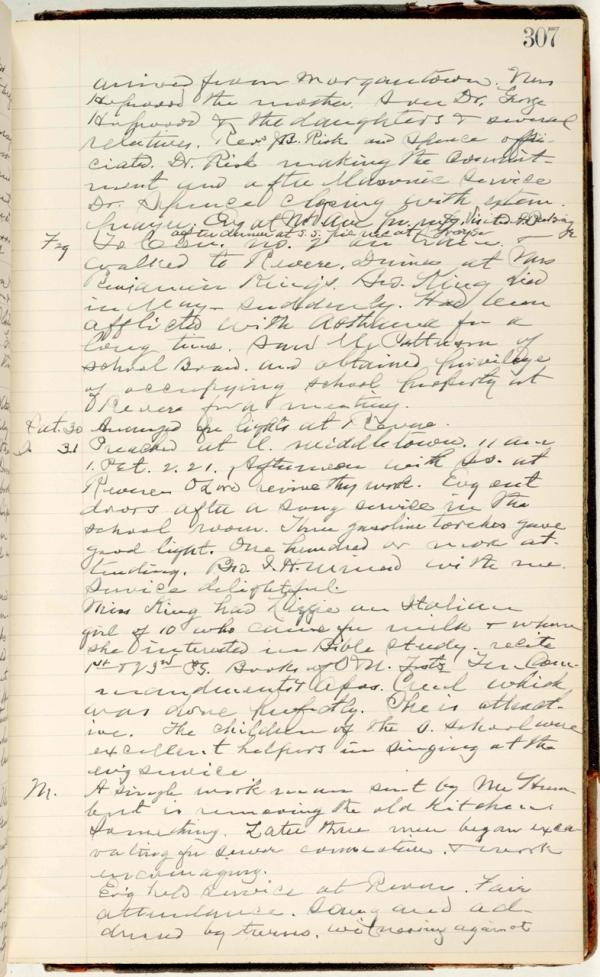 307
arrived from Morgantown. Mrs
Hopwood the mother. Son Dr. George
Hopwood & the daughters & several
relatives. Revs J.B. Risk and Spence offi-
ciated. Dr. Risk making the commit-
ment and after Masonic service
Dr. Spence closing with extem.
prayer. Evg at
after dinner at S.S.
Fri 29 To Con. no. 2 on train. &
walked to Revere. Dinner at Mrs
Benjamin King's. Bro. King died
in May - suddenly. Had been
afflicted with Asthma for a
long time. Saw Mr Patterson of
School Board. and obtained privilege
of occupying school property at
Revere for a meeting.
Sat. 30 Arranged for lights at Revere.
S 31 Preached at U. Middletown. 11 am
1. Pet. 2. 21. Afternoon with S.S. at
Revere. O Lord revive thy work. Evg out
doors after a song service in the
school room. Three gasoline torches gave
good light. One hundred or more at-
tending. Bro. I. H. with me.
Service delightful.
Miss King had Lizzie an Italian
girl of 10 who came for milk & whom
she interested in Bible Study. recite
1st & 23rd PS. Books of O & N. Tests Ten Com-
mandments & Apos. Creed which
was done perfectly. She is attract-
ive. The children of the S. School were
excellent helpers in singing at the
ev'g service.
M. A single work man sent by Mr Hum-
bert is removing the old kitchen
something. Later three men began exca-
vating for sewer connection. & work
encouraging.
Ev'g held service at Revere. Fair
attendance. Sang and ad-
dressed by turns. witnessing against